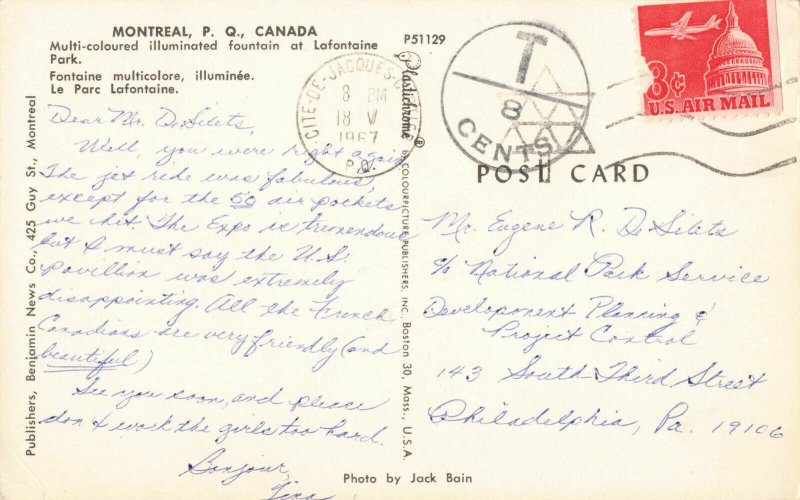 MONTREAL, P. Q., CANADA
Multi-coloured illuminated fountain at Lafontaine
Park.
Fontaine multicolore, illuminée.
Le Parc Lafontaine.
P51129
Publishers, Benjamin News Co., 425 Guy St., Montreal
Plastichrome® by COLOURPICTURE PUBLISHERS, INC., Boston 30, Mass., U.S.A.
CITE-DE-JACQUES-
8 PM
18 V
1967
P.Q.
T
8
CENTS
8¢
U.S. AIR MAIL
POST CARD
Dear Mr. DeSilets,
Well, you were right again.
The jet ride was fabulous,
except for the 50 air pockets
we hit. The Expo is tremendous
but I must say the U.S.
pavillion was extremely
disappointing. All the French
Canadians are very friendly (and
beautiful)
See you soon, and please
don't work the girls too hard.
Bonjour,
Gina
Mr. Eugene R. DeSilets
c/o National Park Service
Development Planning &
Project Control
143 South Third Street
Philadelphia, Pa. 19106
Photo by Jack Bain